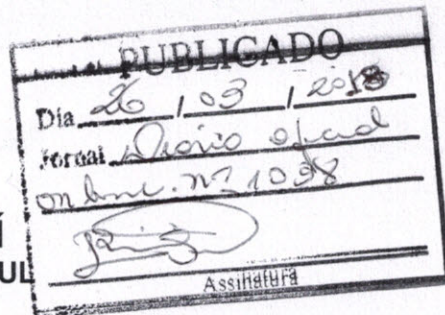 PUBLICADO
Dia 26 / 03 / 2018
Jornal Diário oficial
on line. nº 1038
Í
UL
Assinatura